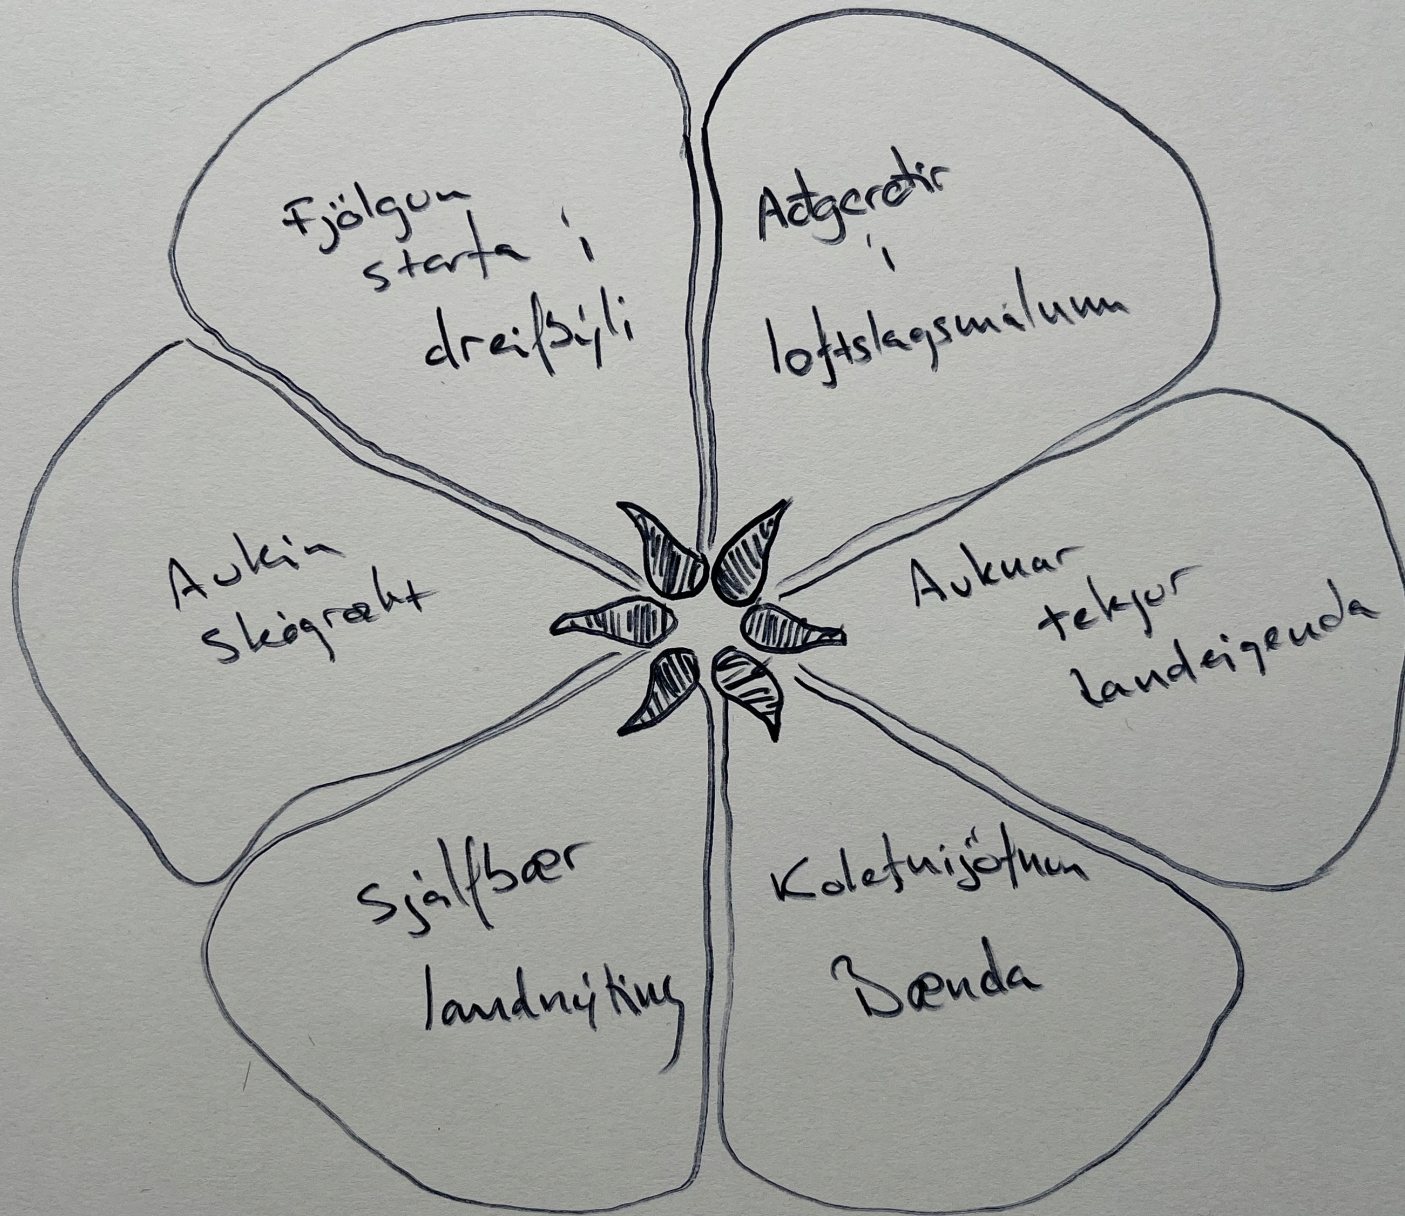 Fjölgun
starfa í
dreifbýli
Aðgerðir
í
loftslagsmálum
Auknar
tekjur
landeigenda
Kolefnisjöfnun
Bænda
Sjálfbær
landnýting
Aukin
skógrækt